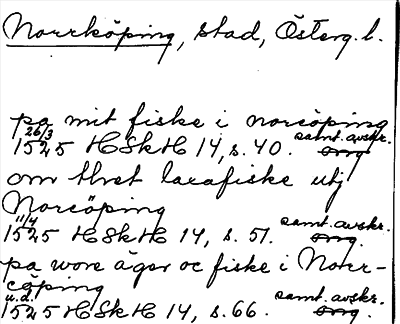 Norrköping, stad, Österg.l.
pa mit fiske i norcöping
26/3 samt. avskr.
1525 HSkH 14, s. 40. orig.
om thet laxafiske utj
Norcöping
11/4 samt. avskr.
1525 HSkH 14, s. 51. orig.
pa wore äger oc fiske i Norr-
cöping
u.d. samt. avskr.
1525 HSkH 14, s. 66. orig.